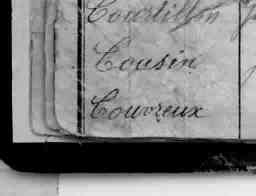 Courtillon
Cousin
Couvreux